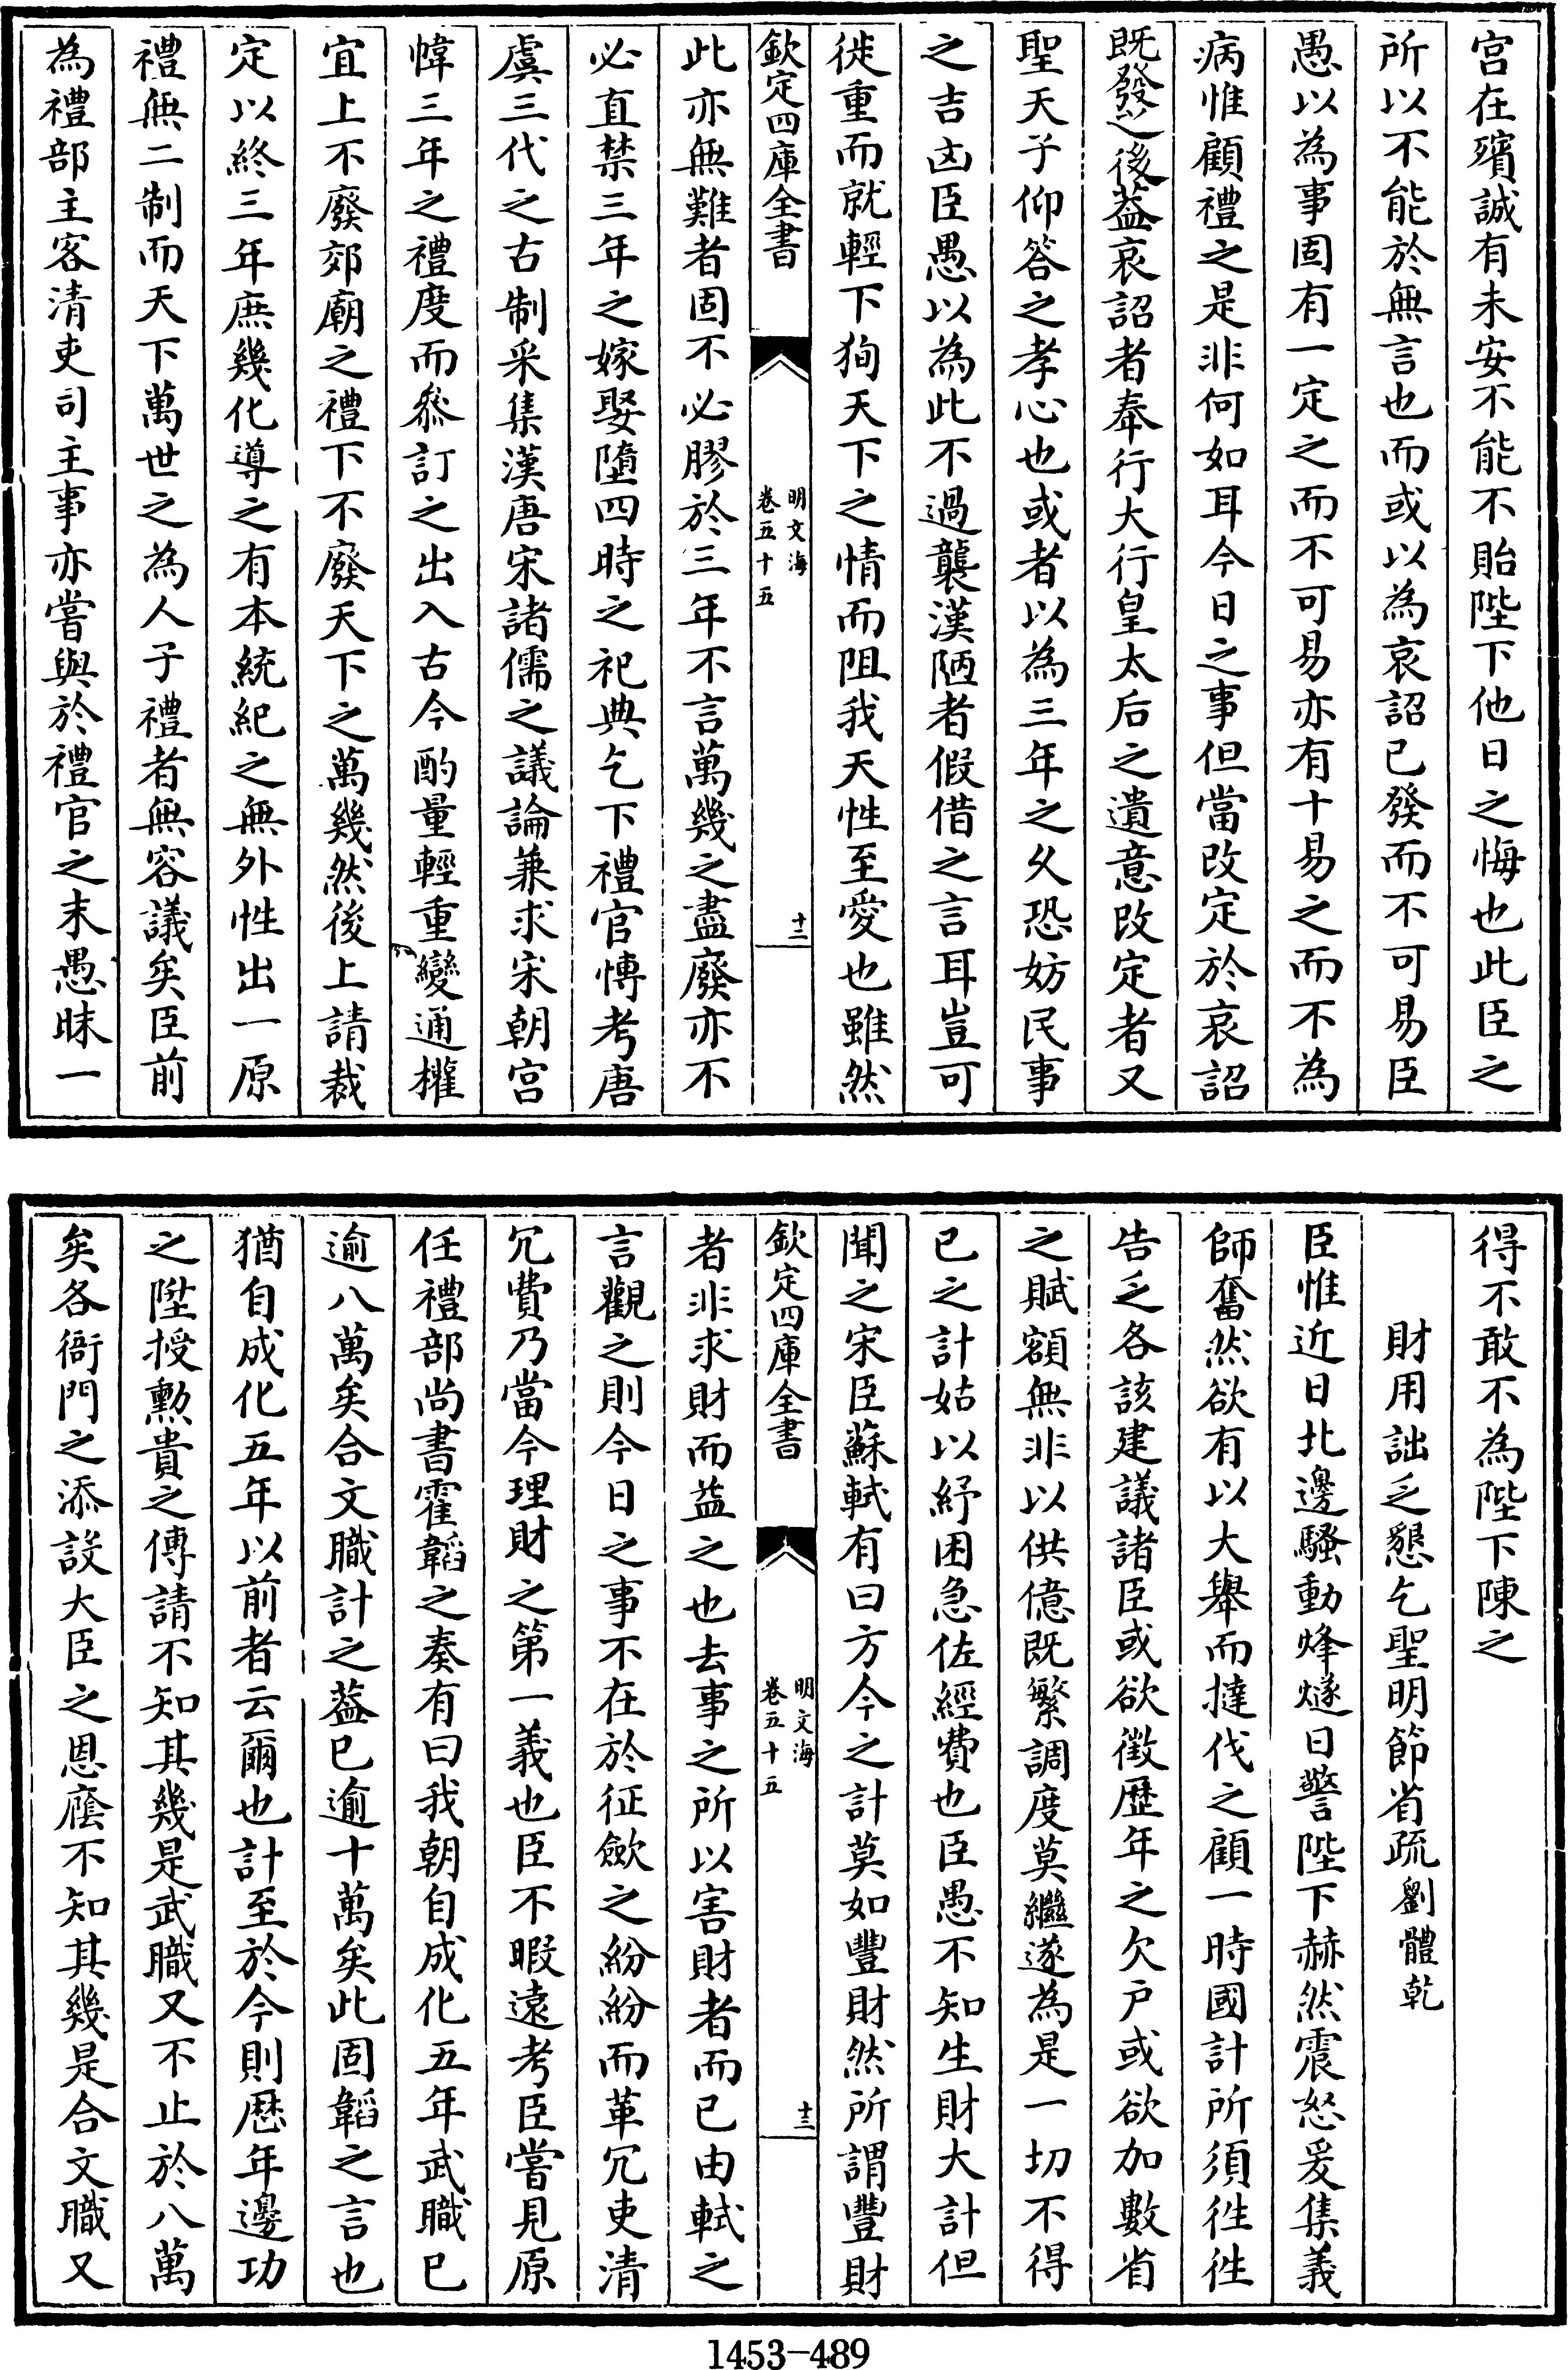 宫在殯誠有未安不能不貽陛下他日之悔也此臣之
所以不能於無言也而或以為哀詔已發而不可易臣
愚以為事固有一定之而不可易亦有十易之而不為
病惟顧禮之是非何如耳今日之事但當改定於哀詔
既發之後葢哀詔者奉行大行皇太后之遺意改定者又
聖天子仰答之孝心也或者以為三年之乆恐妨民事
之吉凶臣愚以為此不過襲漢陋者假借之言耳豈可
徙重而就輕下狥天下之情而阻我天性至愛也雖然
欽定四庫全書
明文海
卷五十五
十二
此亦無難者固不必膠於三年不言萬幾之盡廢亦不
必直禁三年之嫁娶墮四時之祀典乞下禮官博考唐
虞三代之古制采集漢唐宋諸儒之議論兼求宋朝宫
幃三年之禮度而叅訂之出入古今酌量輕重變通權
宜上不廢郊廟之禮下不廢天下之萬幾然後上請裁
定以終三年庶幾化導之有本統紀之無外性出一原
禮無二制而天下萬世之為人子禮者無容議矣臣前
為禮部主客清吏司主事亦嘗與於禮官之末愚昧一
得不敢不為陛下陳之
財用詘乏懇乞聖明節省疏劉體乾
臣惟近日北邊騷動烽燧日警陛下赫然震怒爰集義
師奮然欲有以大舉而撻伐之顧一時國計所須徃徃
告乏各該建議諸臣或欲徵歴年之欠户或欲加數省
之賦額無非以供億既繁調度莫繼遂為是一切不得
已之計姑以紓困急佐經費也臣愚不知生財大計但
聞之宋臣蘇軾有曰方今之計莫如豐財然所謂豐財
欽定四庫全書
明文海
卷五十五
十三
者非求財而益之也去事之所以害財者而已由軾之
言觀之則今日之事不在於征歛之紛紛而革冗吏清
冗費乃當今理財之第一義也臣不暇遠考臣嘗見原
任禮部尚書霍韜之奏有曰我朝自成化五年武職已
逾八萬矣合文職計之葢已逾十萬矣此固韜之言也
猶自成化五年以前者云爾也計至於今則厯年邊功
之陞授勲貴之傳請不知其幾是武職又不止於八萬
矣各衙門之添設大臣之恩廕不知其幾是合文職又
1453-489